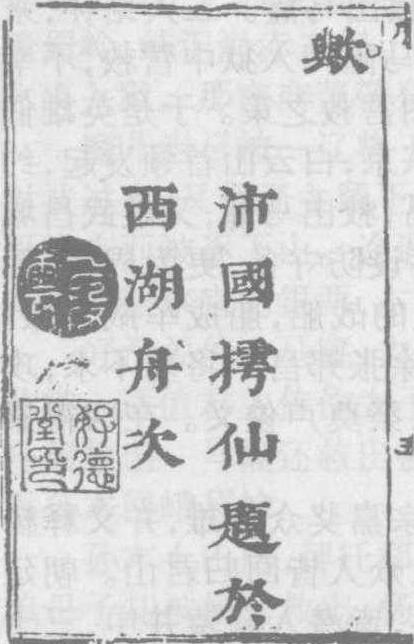 歟
沛國摴仙題於
西湖舟次
好德
堂印